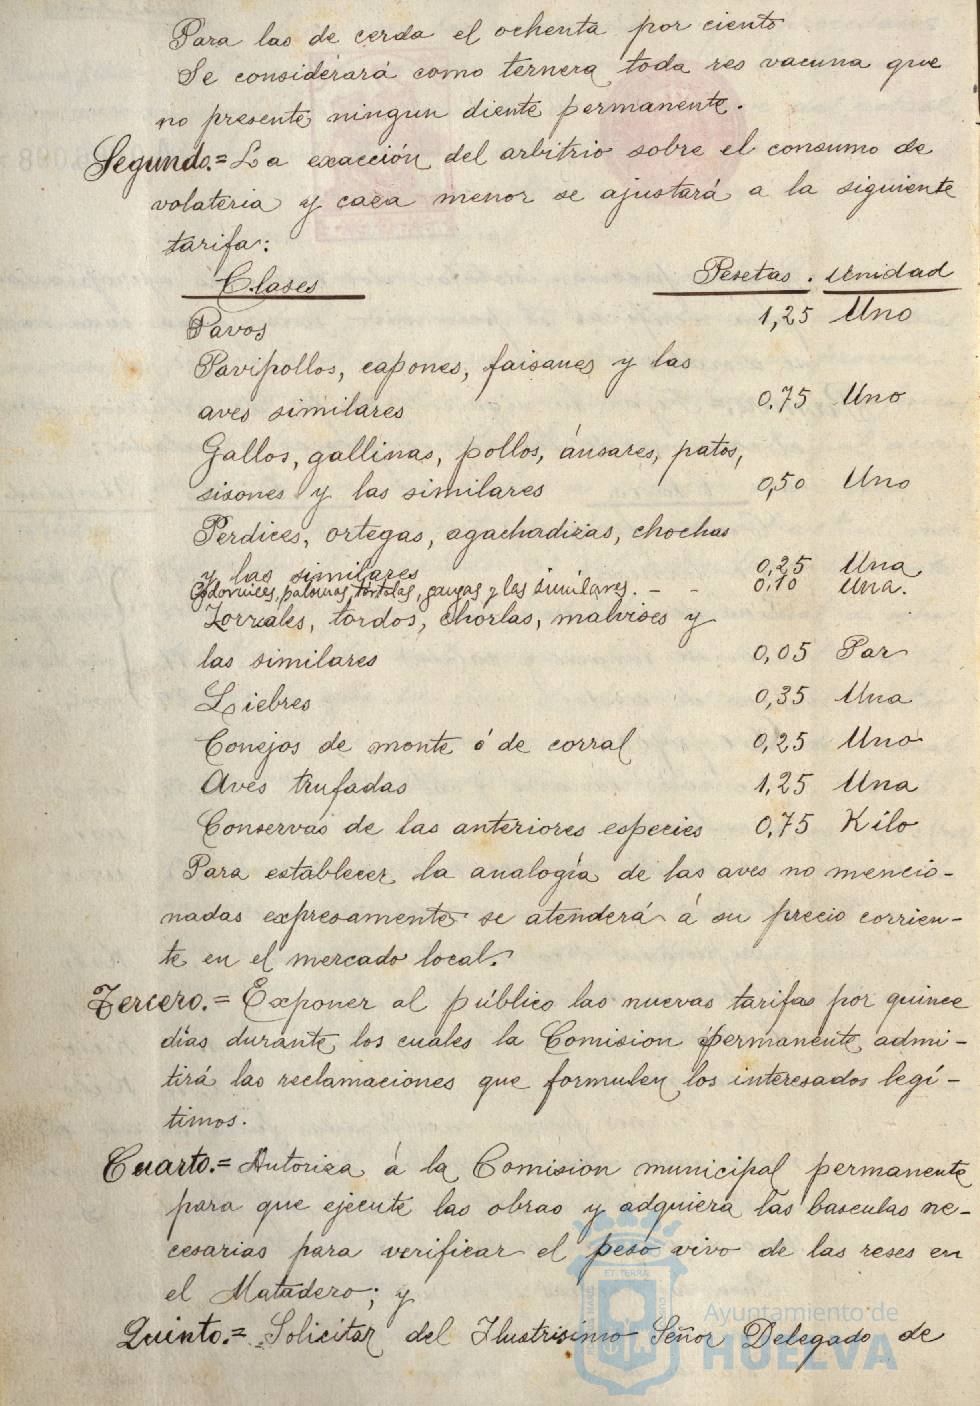 Para las de cerda el ochenta por ciento
Se considerará como ternera toda res vacuna que
no presente ningun diente permanente.
Segundo.= La exacción del arbitrio sobre el consumo de
volateria y caza menor se ajustará a la siguiente
tarifa:
Clases Pesetas. Unidad
Pavos 1,25 Uno
Pavipollos, capones, faisanes y las
aves similares 0,75 Uno
Gallos, gallinas, pollos, ánsares, patos,
sisones y las similares 0,50 Uno
Perdices, ortegas, agachadizas, chochas
y las similares 0,25 Una
Codornices, palomas, tórtolas, gangas y las similares. - - 0,10 Una.
Zorzales, tordos, chorlas, malvises y
las similares 0,05 Par
Liebres 0,35 Una
Conejos de monte ó de corral 0,25 Uno
Aves trufadas 1,25 Una
Conservas de las anteriores especies 0,75 Kilo
Para establecer la analogía de las aves no mencio-
nadas expresamente se atenderá á su precio corrien-
te en el mercado local.
Tercero.= Exponer al público las nuevas tarifas por quince
días durante los cuales la Comision permanente admi-
tirá las reclamaciones que formulen los interesados legí-
timos.
Cuarto.= Autoriza á la Comision municipal permanente
para que ejecute las obras y adquiera las basculas ne-
cesarias para verificar el peso vivo de las reses en
el Matadero; y
Quinto.= Solicitar del Ilustrisimo Señor Delegado de
Ayuntamiento de
HUELVA